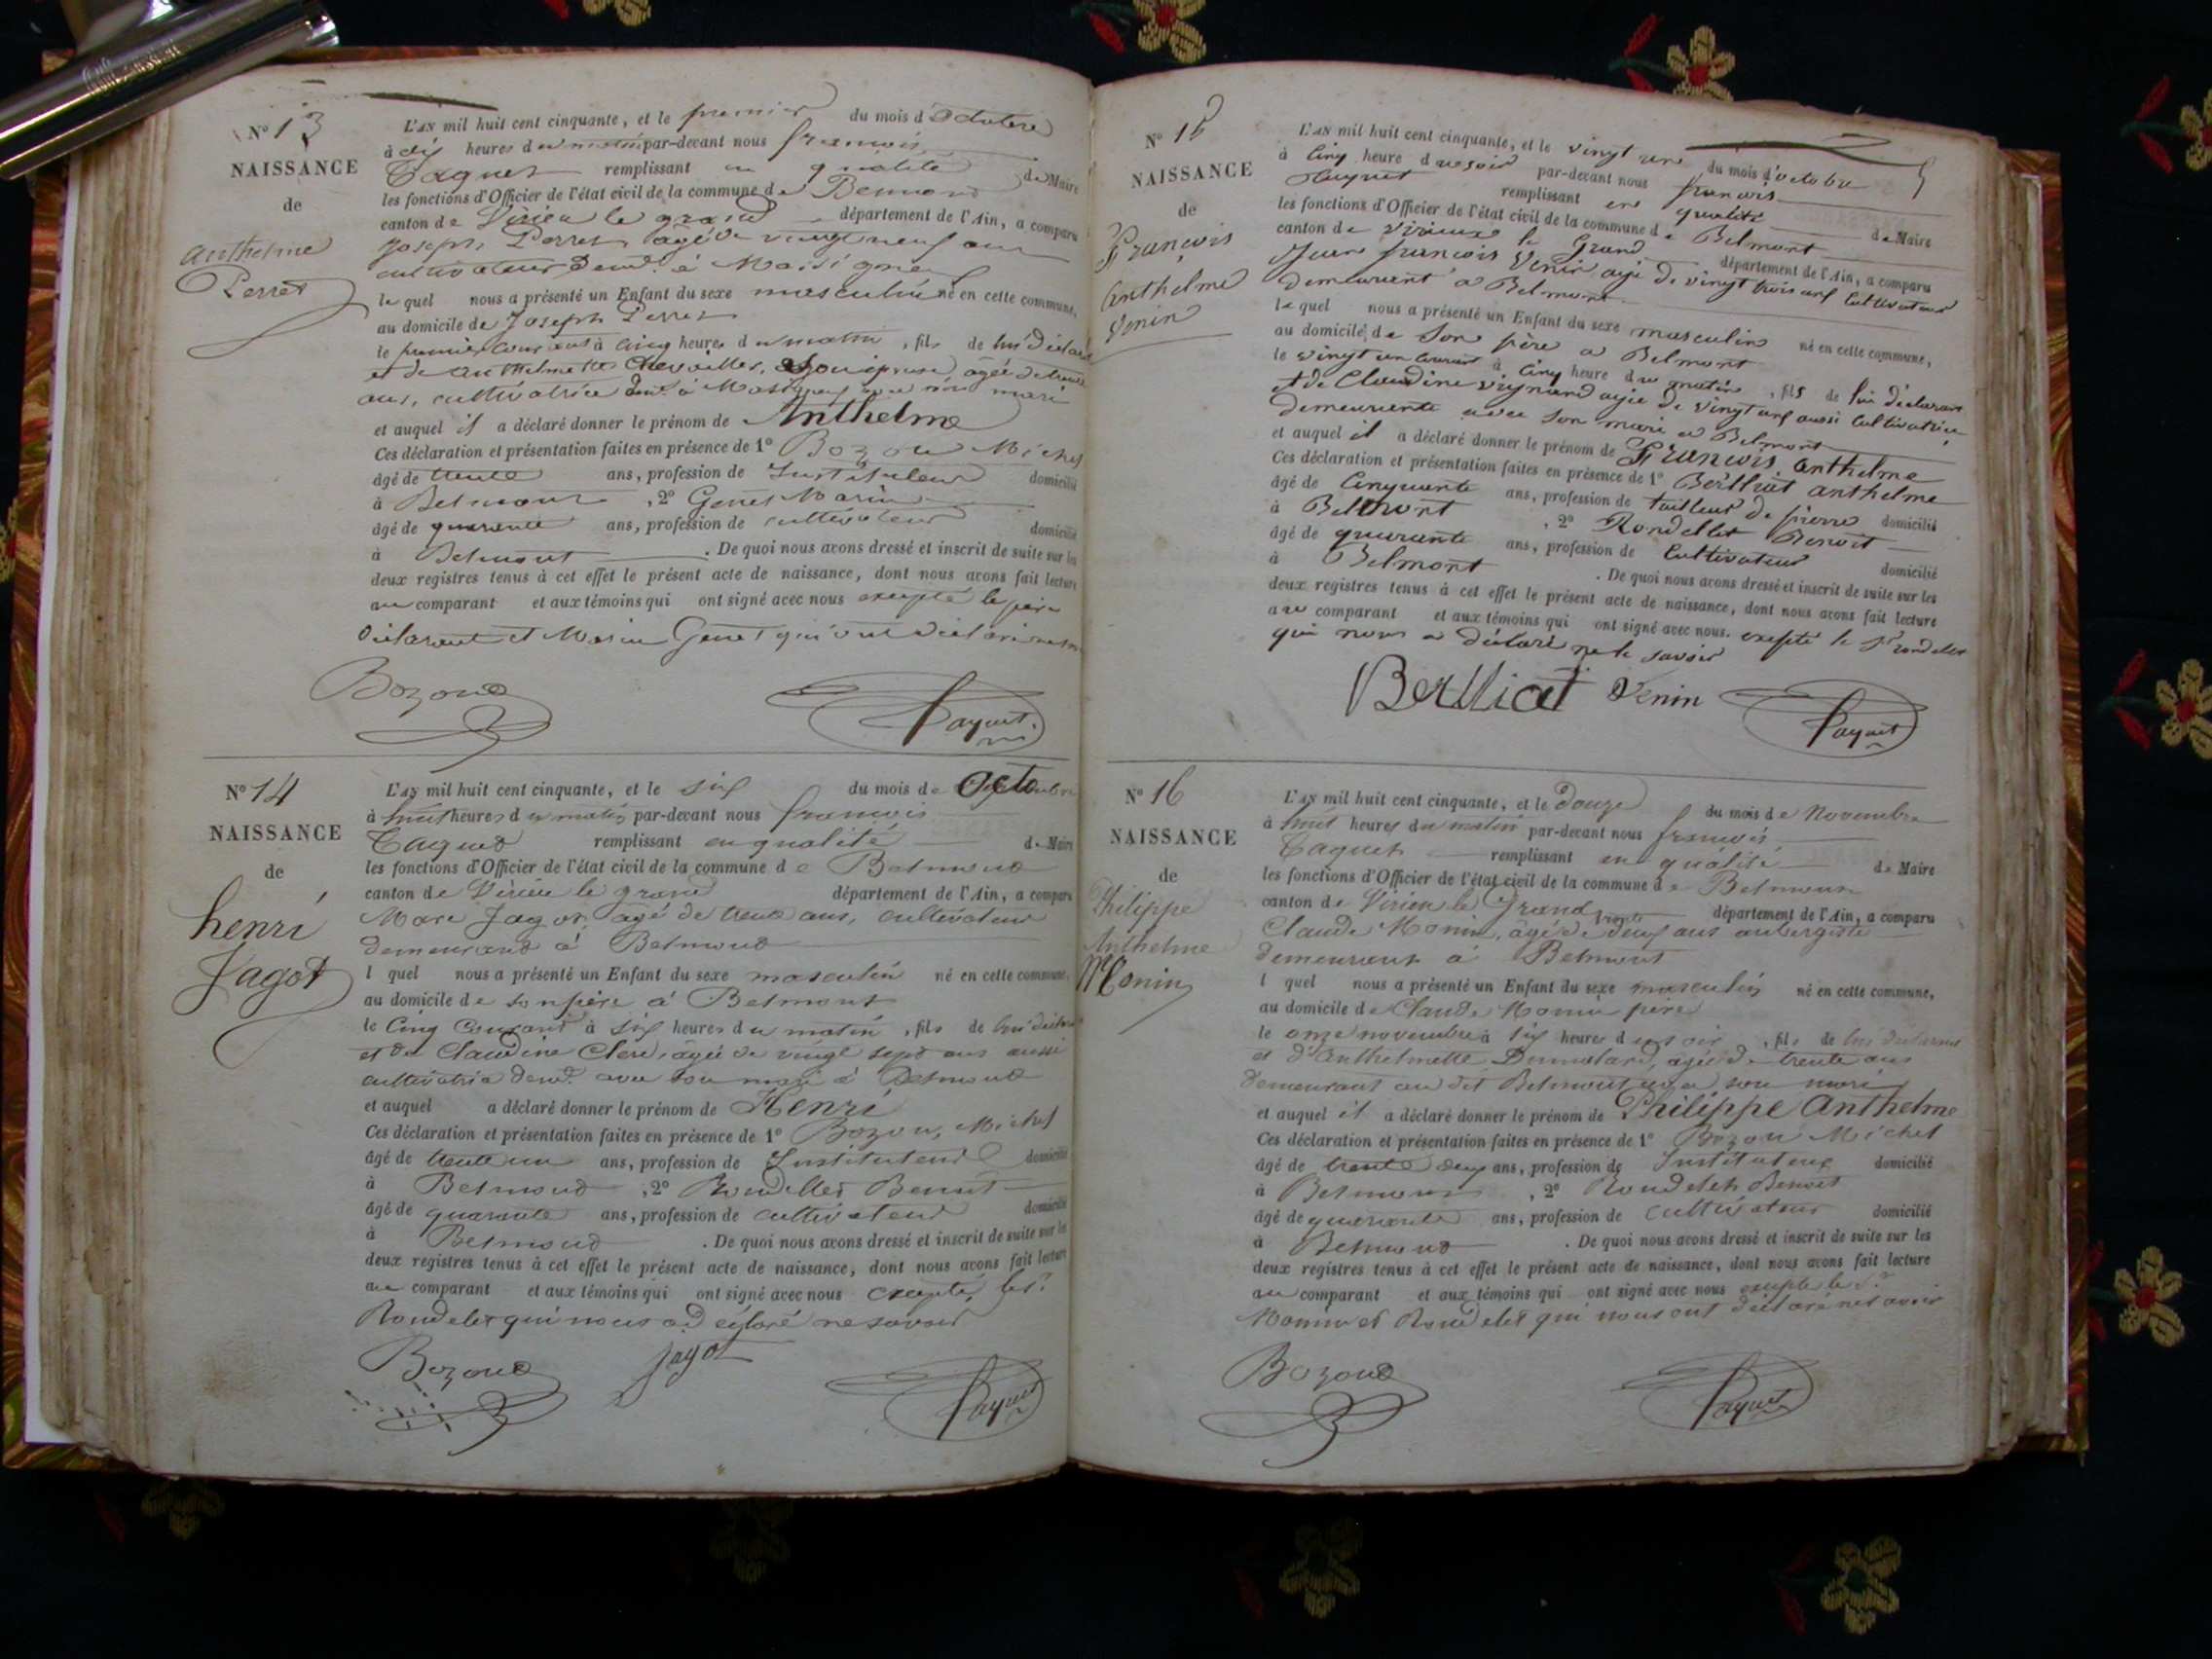 N° 13
NAISSANCE
de
Anthelme
Perret
L'AN mil huit cent cinquante, et le premier du mois d'Octobre
à dix heures du matin par-devant nous françois
Paquet remplissant en qualité de Maire
les fonctions d'Officier de l'état civil de la commune de Belmont
canton de Virieu le grand département de l'Ain, a comparu
Joseph Perret âgé de vingt neuf ans
cultivateur demt à Massigneu
lequel nous a présenté un Enfant du sexe masculin né en cette commune,
au domicile de Joseph Perret
le premier courant à cinq heures du matin, fils de lui déclarant
et de Anthelmette Chevailler, son épouse âgée de trente
ans, cultivatrice demt à Massigneu avec son mari
et auquel il a déclaré donner le prénom de Anthelme
Ces déclaration et présentation faites en présence de 1° Bozon Michel
âgé de trente ans, profession de Instituteur domicilié
à Belmont, 2° Genet Marin
âgé de quarante ans, profession de cultivateur domicilié
à Belmont. De quoi nous avons dressé et inscrit de suite sur les
deux registres tenus à cet effet le présent acte de naissance, dont nous avons fait lecture
au comparant et aux témoins qui ont signé avec nous excepté le père
déclarant et Marin Genet qui ont déclaré
Bozond Paquet
N° 14
NAISSANCE
de
henri
Jagot
L'AN mil huit cent cinquante, et le six du mois de Octobre
à huit heures du matin par-devant nous françois
Paquet remplissant en qualité de Maire
les fonctions d'Officier de l'état civil de la commune de Belmont
canton de Virieu le grand département de l'Ain, a comparu
Marc Jagot, âgé de trente ans, cultivateur
demeurand à Belmond
l quel nous a présenté un Enfant du sexe masculin né en cette commune,
au domicile de son père à Belmont
le Cinq Courant à six heures du matin, fils de lui déclarant
et de Claudine Clerc, âgée de vingt sept ans aussi
cultivatrice demt avec son mari à Belmond
et auquel a déclaré donner le prénom de Henri
Ces déclaration et présentation faites en présence de 1° Bozon, Michel
âgé de trente un ans, profession de Instituteur domicilié
à Belmond, 2° Rondellet Benoit
âgé de quarante ans, profession de cultivateur domicilié
à Belmond. De quoi nous avons dressé et inscrit de suite sur les
deux registres tenus à cet effet le présent acte de naissance, dont nous avons fait lecture
au comparant et aux témoins qui ont signé avec nous excepté le sr
Rondelet qui nous a déclaré ne savoir
Bozond Jagot Paquet
N° 15
NAISSANCE
de
François
Anthelme
Venin
L'AN mil huit cent cinquante, et le vingt un du mois d'octobre
à cinq heure du soir par-devant nous francois
Paquet remplissant en qualité de Maire
les fonctions d'Officier de l'état civil de la commune de Belmont
canton de virieux le Grand département de l'Ain, a comparu
Jean francois Venin agé de vingt trois ans Cultivateur
demeurent a Belmont
le quel nous a présenté un Enfant du sexe masculin né en cette commune,
au domicile de son père a Belmont
le vingt un Courant à Cinq heure du matin, fils de lui déclarant
et de Claudine vignand agée de vingt ans aussi Cultivatrice
demeurente avec son mari a Belmont
et auquel il a déclaré donner le prénom de François Anthelme
Ces déclaration et présentation faites en présence de 1° Berlliat Anthelme
âgé de Cinquante ans, profession de tailleur de pierre domicilié
à Belmont, 2° Rondellet Benoit
âgé de quarante ans, profession de Cultivateur domicilié
à Belmont. De quoi nous avons dressé et inscrit de suite sur les
deux registres tenus à cet effet le présent acte de naissance, dont nous avons fait lecture
au comparant et aux témoins qui ont signé avec nous. excepté le Sr rondellet
qui nous a déclaré ne le savoir
Berlliat Venin Paquet
N° 16
NAISSANCE
de
Philippe
Anthelme
Monin
L'AN mil huit cent cinquante, et le Douze du mois de Novembre
à huit heures du matin par-devant nous françois
Paquet remplissant en qualité de Maire
les fonctions d'Officier de l'état civil de la commune de Belmont
canton de Virieu le Grand département de l'Ain, a comparu
Claude Monin, âgé de trente deux ans aubergiste
demeurant à Belmont
l quel nous a présenté un Enfant du sexe masculin né en cette commune,
au domicile de Claude Monin père
le onze novembre à six heures du soir, fils de lui déclarant
et d'Anthelmette Dumolard, âgée de trente ans
demeurant au dit Belmont avec son mari
et auquel il a déclaré donner le prénom de Philippe Anthelme
Ces déclaration et présentation faites en présence de 1° Bozon Michel
âgé de trente deux ans, profession de Instituteur domicilié
à Belmont, 2° Rondelet Benoit
âgé de quarante ans, profession de cultivateur domicilié
à Belmond. De quoi nous avons dressé et inscrit de suite sur les
deux registres tenus à cet effet le présent acte de naissance, dont nous avons fait lecture
au comparant et aux témoins qui ont signé avec nous excepté le Sr
Monin et Rondelet qui nous ont déclaré ne savoir
Bozond Paquet